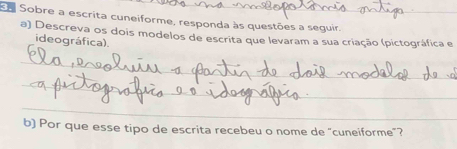 na mesopotâmia antiga.
3. Sobre a escrita cuneiforme, responda às questões a seguir.
a) Descreva os dois modelos de escrita que levaram a sua criação (pictográfica e
ideográfica).
Ela, evoluiu a partir de dois modelos de
a pictográfica e o ideográfico.
b) Por que esse tipo de escrita recebeu o nome de "cuneiforme"?